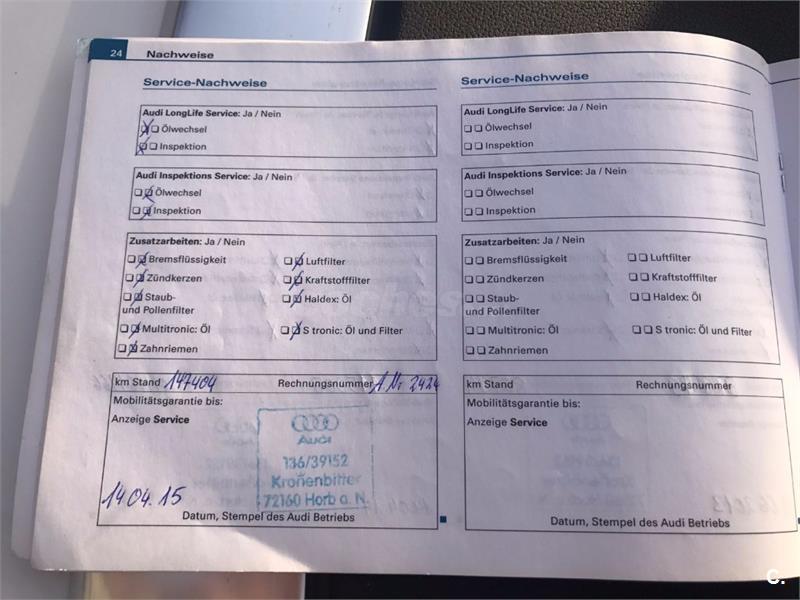 24 Nachweise
Service-Nachweise
Audi LongLife Service: Ja / Nein
Ölwechsel
Inspektion
Audi Inspektions Service: Ja / Nein
Ölwechsel
Inspektion
Zusatzarbeiten: Ja / Nein
Bremsflüssigkeit Luftfilter
Zündkerzen Kraftstofffilter
Staub- Haldex: Öl
und Pollenfilter
Multitronic: Öl S tronic: Öl und Filter
Zahnriemen
km Stand 147404 Rechnungsnummer A.Nr 2424
Mobilitätsgarantie bis:
Anzeige Service
Audi
136/39152
Kroñenbitter
72160 Horb a. N.
14.04.15
Datum, Stempel des Audi Betriebs
Service-Nachweise
Audi LongLife Service: Ja / Nein
Ölwechsel
Inspektion
Audi Inspektions Service: Ja / Nein
Ölwechsel
Inspektion
Zusatzarbeiten: Ja / Nein
Bremsflüssigkeit Luftfilter
Zündkerzen Kraftstofffilter
Staub- Haldex: Öl
und Pollenfilter
Multitronic: Öl S tronic: Öl und Filter
Zahnriemen
km Stand Rechnungsnummer
Mobilitätsgarantie bis:
Anzeige Service
Datum, Stempel des Audi Betriebs
C.